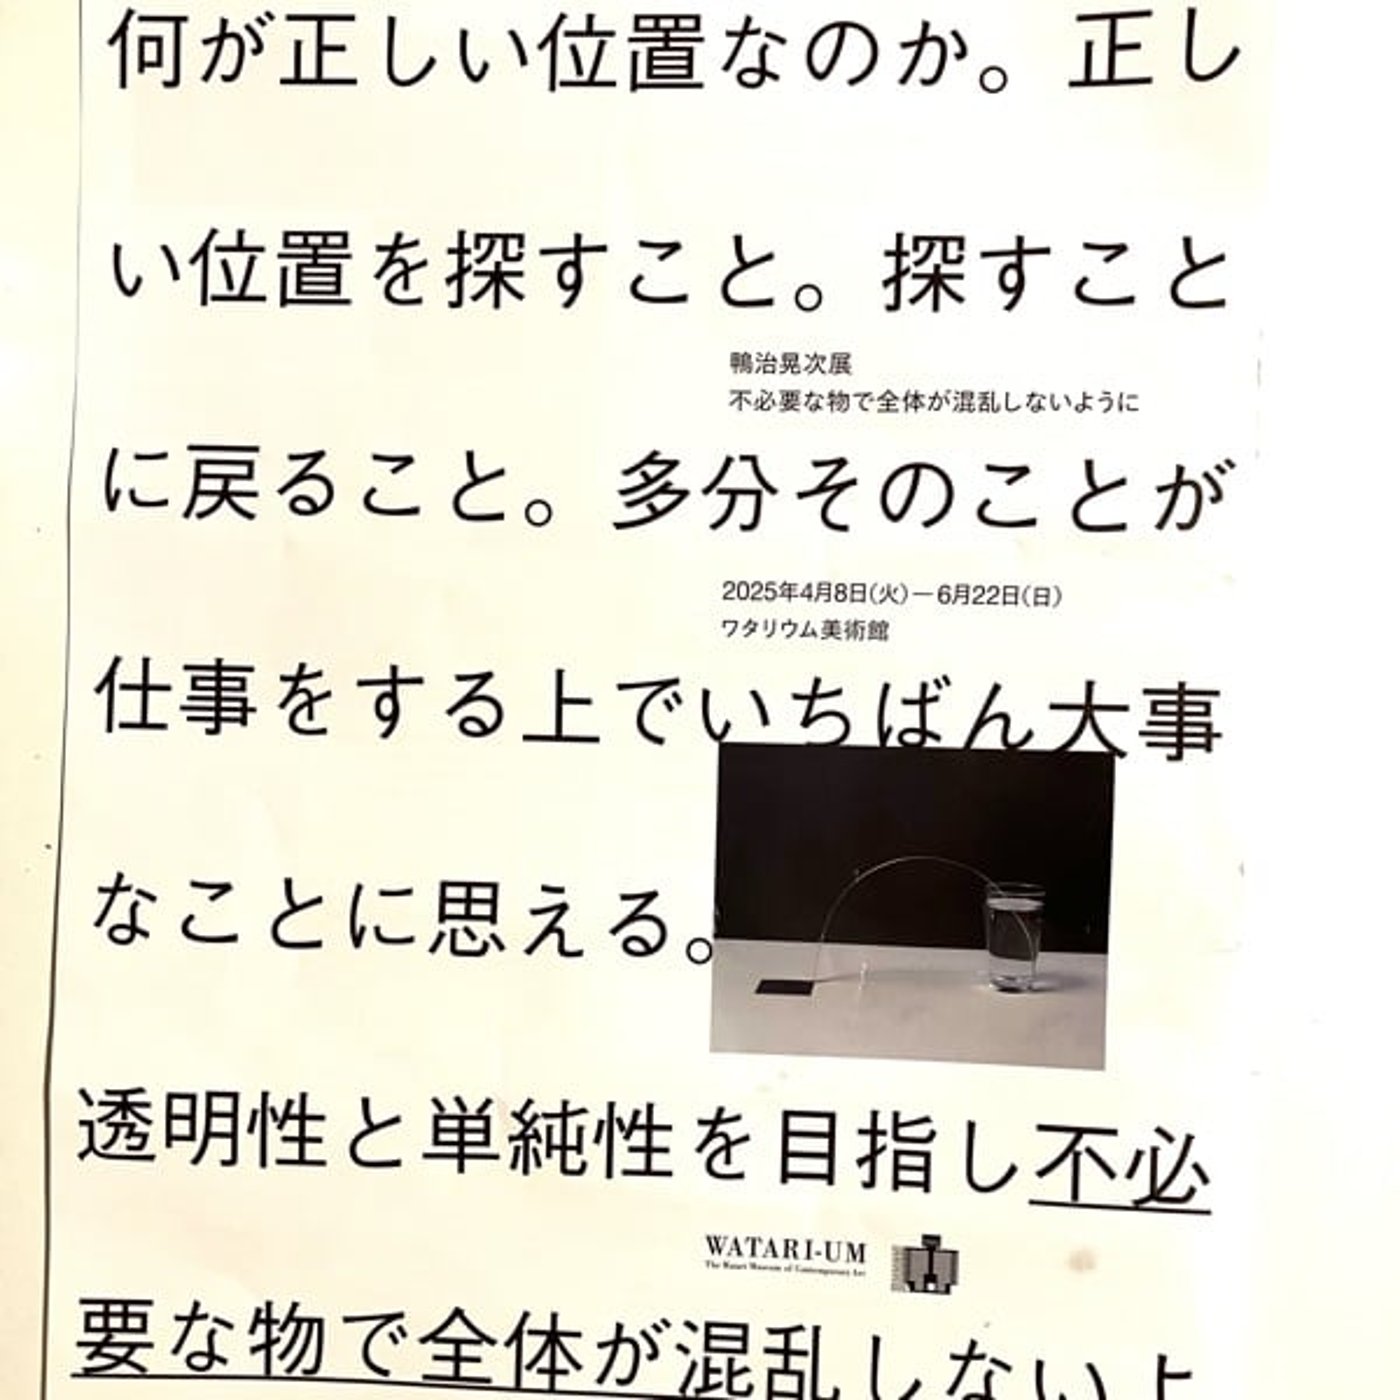 何が正しい位置なのか。正し
い位置を探すこと。探すこと
鴨治晃次展
不必要な物で全体が混乱しないように
に戻ること。多分そのことが
2025年4月8日(火)—6月22日(日)
ワタリウム美術館
仕事をする上でいちばん大事
なことに思える。
透明性と単純性を目指し不必
WATARI-UM
The Watari Museum of Contemporary Art
要な物で全体が混乱しないよ